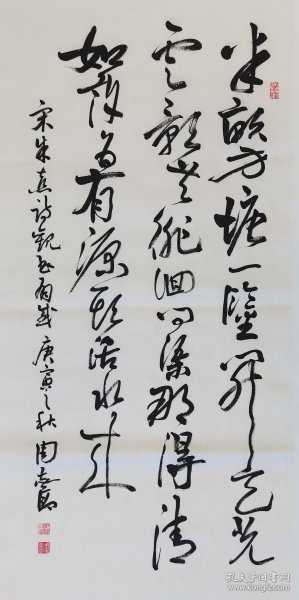 半畝方塘一鑑開天光
雲影共徘徊問渠那得清
如許为有源頭活水來
宋朱熹詩觀書有感 庚寅之秋 周志高
孔夫子旧书网